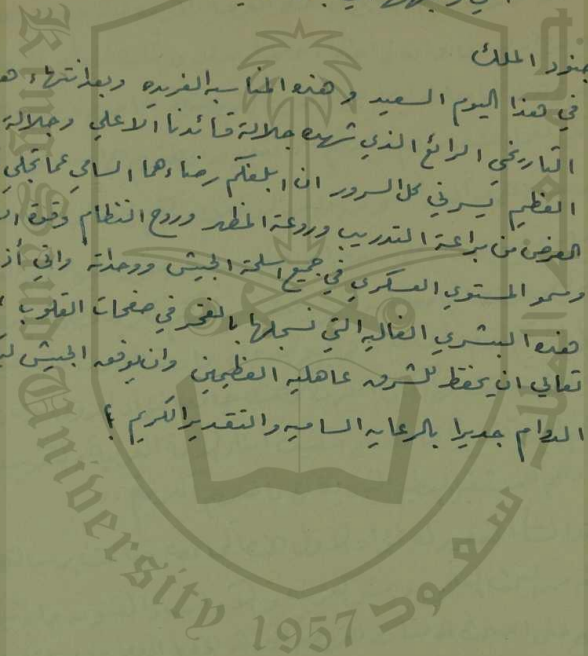 جنود الملك
في هذا اليوم السعيد وهذه المناسبه الفريده وبعد انتهاء
التاريخي الرائع الذي شهده جلالة قائدنا الاعلي وجلالة
العظيم يسرني كل السرور ان ابلغكم رضاءهما السامي عما تجلي
العرض من براعة التدريب وروعة المظهر وروح النظام وقوة
وسمو المستوي العسكري في جميع اسلحة الجيش ووحداته واني
هذه البشري الغاليه التي نسجلها بالفخر في صفحات القلوب
تعالي ان يحفظ للشرق عاهليه العظيمين وان يوفق الجيش
الدوام جديرا بالرعايه الساميه والتقدير الكريم
King Saud University
1957
سعود